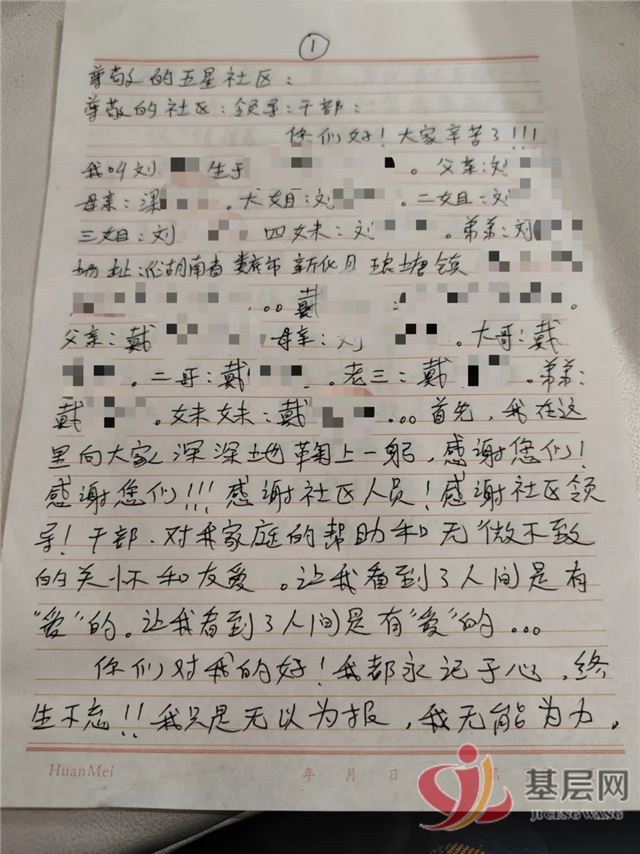 ①
尊敬的五星社区：
尊敬的社区：领导：干部：
你们好！大家辛苦了!!!
我叫刘 生于 。父亲：刘
母亲：梁 。大姐：刘 。二姐：刘
三姐：刘 四妹：刘 。弟弟：刘
地址 湖南省娄底市新化县 塘镇
...戴 ： 。
父亲：戴 母亲：刘 。大哥：戴
。二哥：戴 。老三：戴 。弟弟：
戴 。妹妹：戴 ...首先，我在这
里向大家深深地鞠上一躬，感谢您们！
感谢您们!!!感谢社区人员！感谢社区领
导！干部．对我家庭的帮助和无微不致
的关怀和友爱。让我看到了人间是有
“爱”的。让我看到了人间是有“爱”的...
你们对我的好！我都永记于心，终
生不忘!!我只是无以为报，我无能为力，
HuanMei 年 月 日 第
基层网
JICENGWANG